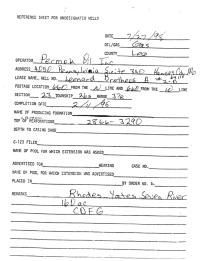 REFERENCE SHEET FOR UNDESIGNATED WELLS
DATE 7/27/95
OIL/GAS Gas
COUNTY Lea
OPERATOR Permok Oil Inc
ADDRESS 4050 Pennsylvania Suite 350 Kansas City Mo
LEASE NAME, WELL NO. Leonard Brothers A #2
FOOTAGE LOCATION 660 FROM THE N LINE AND 660 FROM THE LINE
SECTION 23 TOWNSHIP 26S RANGE 37E
COMPLETION DATE
NAME OF PRODUCING FORMATION
TOP OF PERFORATIONS 2866-3290
DEPTH TO CASING SHOE
C-123 FILED
NAME OF POOL FOR WHICH EXTENSION WAS ASKED
ADVERTISED FOR HEARING CASE NO.
NAME OF POOL, FOR WHICH EXTENSION WAS ADVERTISED
PLACED IN BY ORDER NO. R-
REMARKS Rhodes Yates Seven River
160ac
CDFG